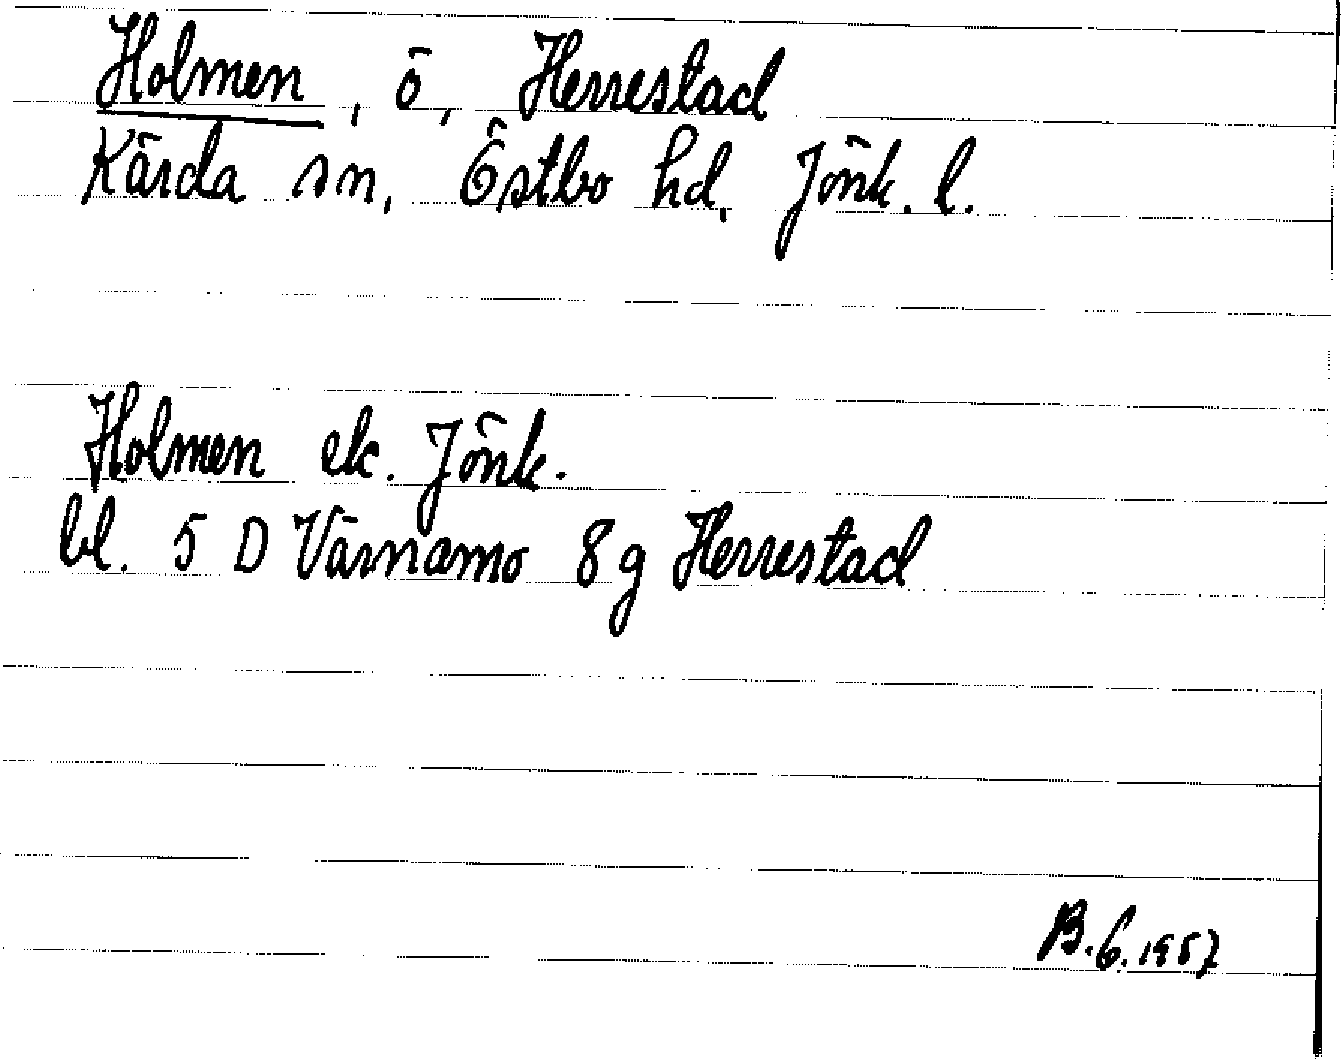 Holmen, ö, Herrestad
Kärda sn, Östbo hd, Jönk. l.
Holmen ek. Jönk.
bl. 5 D Värnamo 8 g Herrestad
B.G. 1957